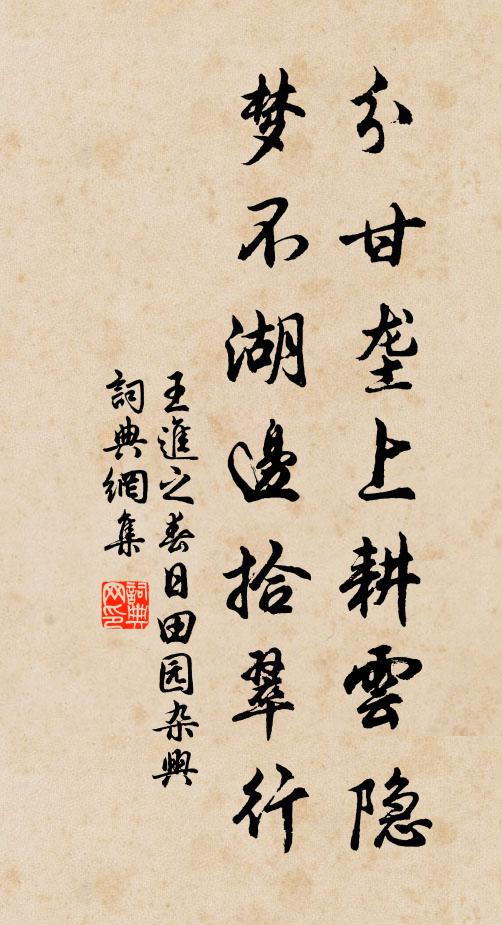 分甘垄上耕雲隐
梦不湖邊拾翠行
王進之春日田园杂興
詞典網集
詞典网印